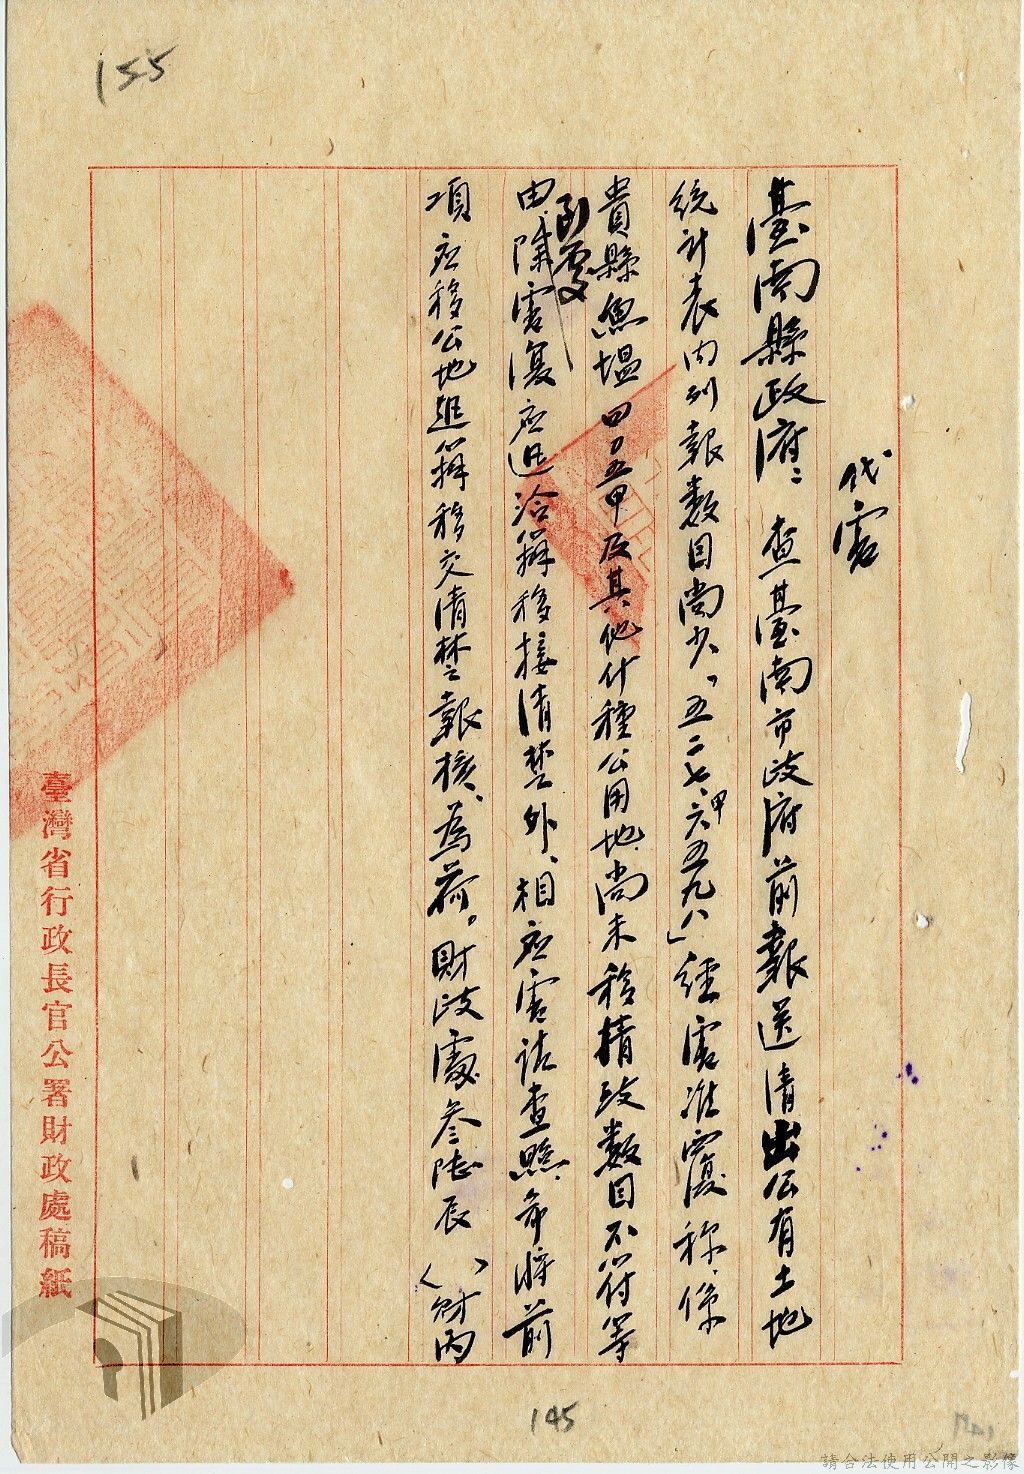 155
代電
臺南縣政府：查臺南市政府前報送清出公有土地
統計表內列報數目尚少「五二七、六五九八」甲經電准電復稱係
貴縣魚塭四〇五甲及其他什種公用地尚未移精致數目不符等
由函電
除電復應迅洽辦移接清楚外、相應電請查照、希將前
項應移公地迅辦移交清楚報核、為荷。財政處叁陸辰（　）財丙
臺灣省行政長官公署財政處稿紙
145
請合法使用公開之影像